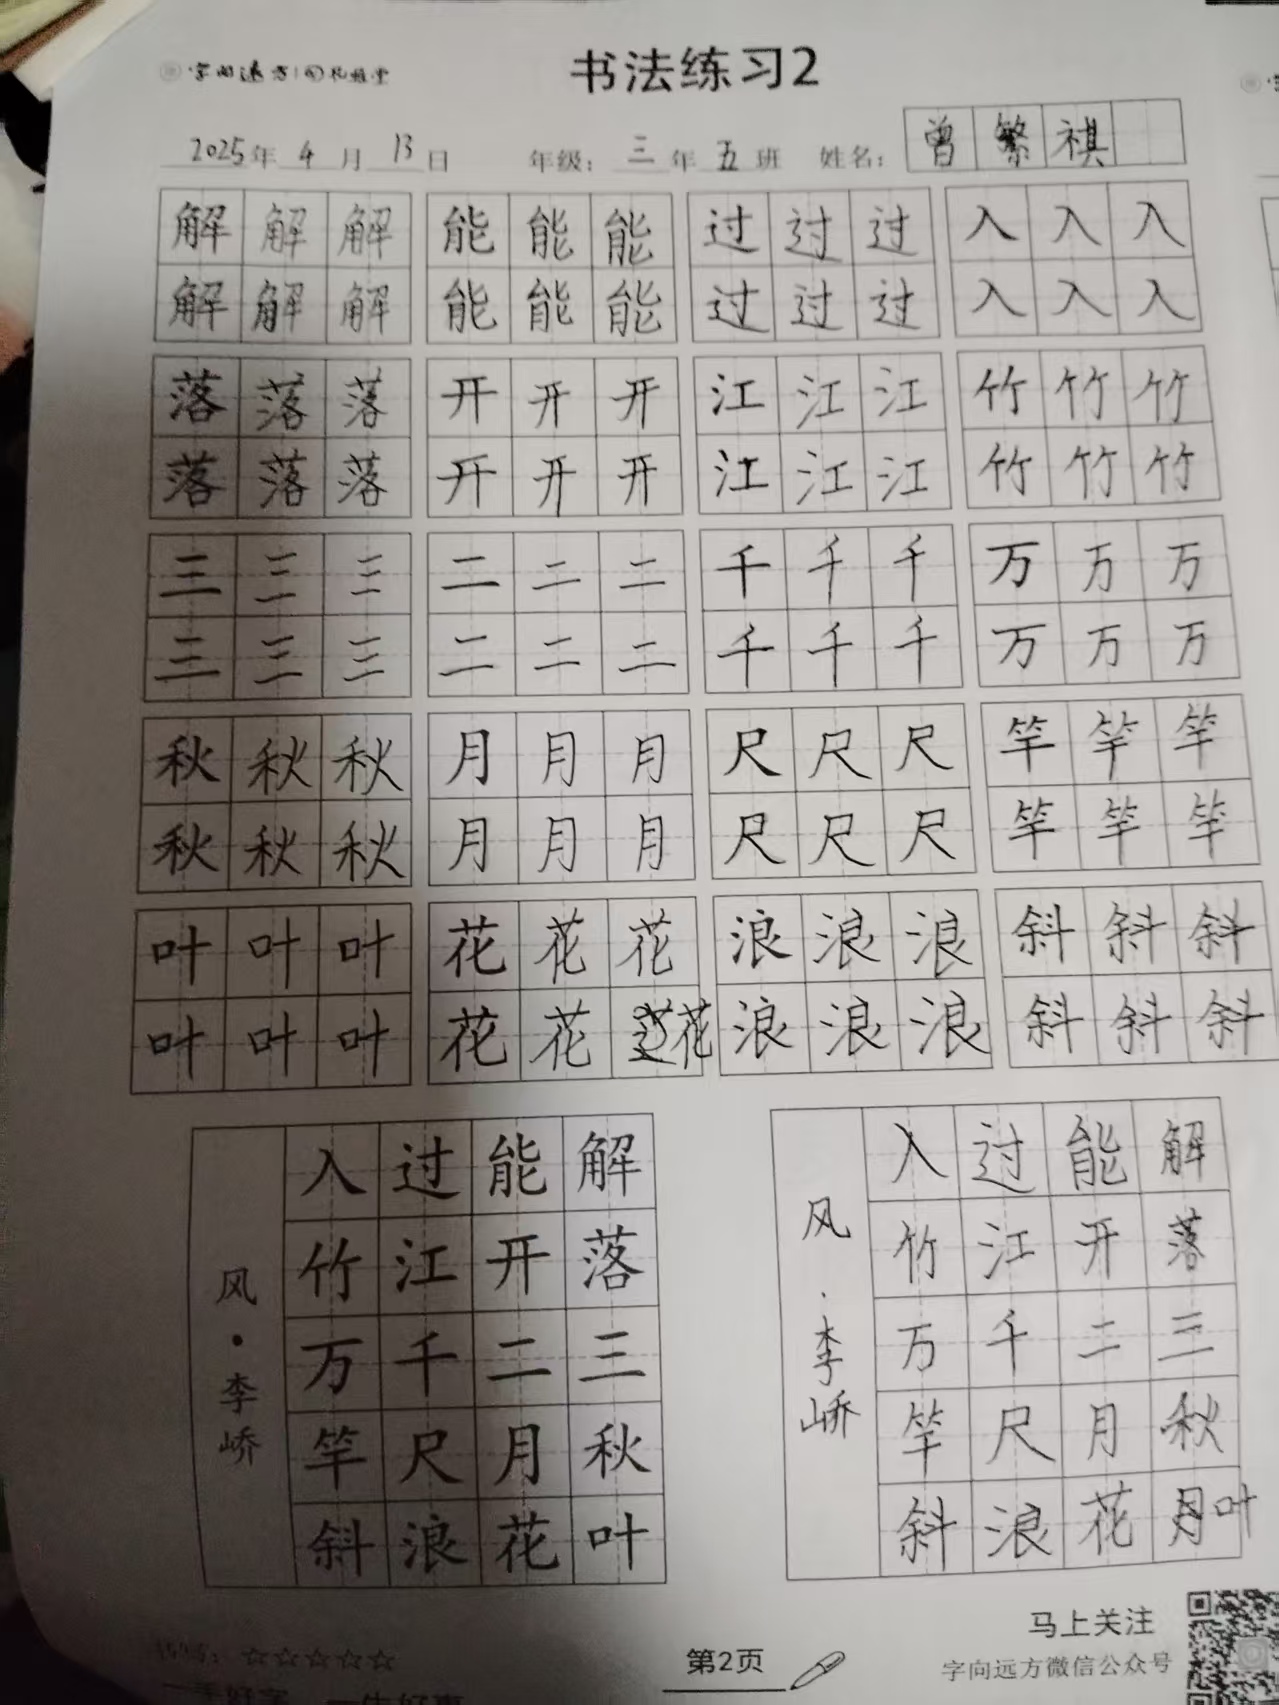 字向远方
书法练习2
2025年 4 月 13 日 年级: 三 年 五 班 姓名: 曾繁祺
解解解 能能能 过过过 入入入
解解解 能能能 过过过 入入入
落落落 开开开 江江江 竹竹竹
落落落 开开开 江江江 竹竹竹
三三三 二二二 千千千 万万万
三三三 二二二 千千千 万万万
秋秋秋 月月月 尺尺尺 竿竿竿
秋秋秋 月月月 尺尺尺 竿竿竿
叶叶叶 花花花 浪浪浪 斜斜斜
叶叶叶 花花花 浪浪浪 斜斜斜
解落三秋叶
能开二月花
过江千尺浪
入竹万竿斜
风·李峤
解落三秋叶
能开二月花
过江千尺浪
入竹万竿斜
风·李峤
马上关注
☆☆☆☆☆
第2页
字向远方微信公众号